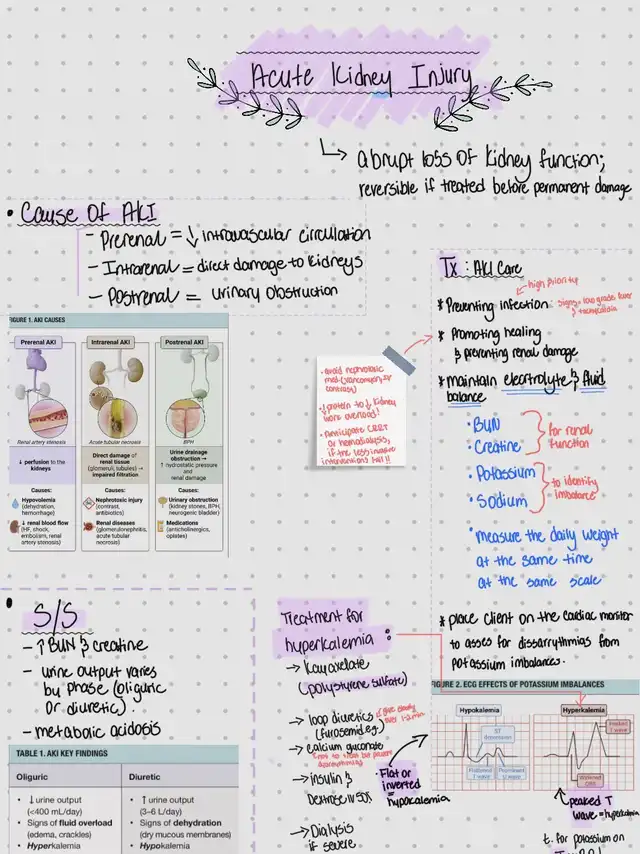 Acute Kidney Injury
abrupt loss of kidney function;
reversible if treated before permanent damage
• Cause Of AKI
– Prerenal = ↓ intravascular circulation
– Intrarenal = direct damage to kidneys
– Postrenal = urinary Obstruction
FIGURE 1. AKI CAUSES
Prerenal AKI
Renal artery stenosis
↓ perfusion to the
kidneys
Causes:
Hypovolemia
(dehydration,
hemorrhage)
↓ renal blood flow
(HF, shock,
embolism, renal
artery stenosis)
Intrarenal AKI
Acute tubular necrosis
Direct damage of
renal tissue
(glomeruli, tubules) →
impaired filtration
Causes:
Nephrotoxic injury
(contrast,
antibiotics)
Renal diseases
(glomerulonephritis,
acute tubular
necrosis)
Postrenal AKI
BPH
Urine drainage
obstruction →
↑ hydrostatic pressure
and
renal damage
Causes:
Urinary obstruction
(kidney stones, BPH,
neurogenic bladder)
Medications
(anticholinergics,
opiates)
• avoid nephrotoxic
med (vancomycin, or
contrast)
• ↓ protein to ↓ kidney
work overload!
• Anticipate CRRT
or hemodialysis,
if the less invasive
interventions fail!!
Tx: AKI Care
high priority
* Preventing infection: signs = low grade fever
& tachycardia
* Promoting healing
& preventing renal damage
* maintain electrolyte & fluid
balance
• BUN
• Creatine
for renal
function
• Potassium
• Sodium
to identify
imbalance
• measure the daily weight
at the same time
at the same scale
* place client on the cardiac monitor
to asses for dissarrythmias from
potassium imbalances.
• S/S
– ↑ BUN & creatine
– urine output varies
by phase (oliguric
or diuretic)
– metabolic acidosis
TABLE 1. AKI KEY FINDINGS
Oliguric
• ↓ urine output
(<400 mL/day)
• Signs of fluid overload
(edema, crackles)
• Hyperkalemia
Diuretic
• ↑ urine output
(3–6 L/day)
• Signs of dehydration
(dry mucous membranes)
• Hypokalemia
Treatment for
hyperkalemia:
→ Kayaxelate
(polystyrene sulfate)
→ loop diuretics
(furosemide)
give slowly
over 1-2 min
→ calcium gluconate
→ insulin &
Dextrose IV 50%
→ Dialysis
if severe
• Flat or
inverted
= hypocalemia
FIGURE 2. ECG EFFECTS OF POTASSIUM IMBALANCES
Hypokalemia
ST
depression
Flattened
T wave
Prominent
U wave
Hyperkalemia
Peaked
T wave
Widened
QRS
peaked T
wave = hyperkalemia
t. for potassium on